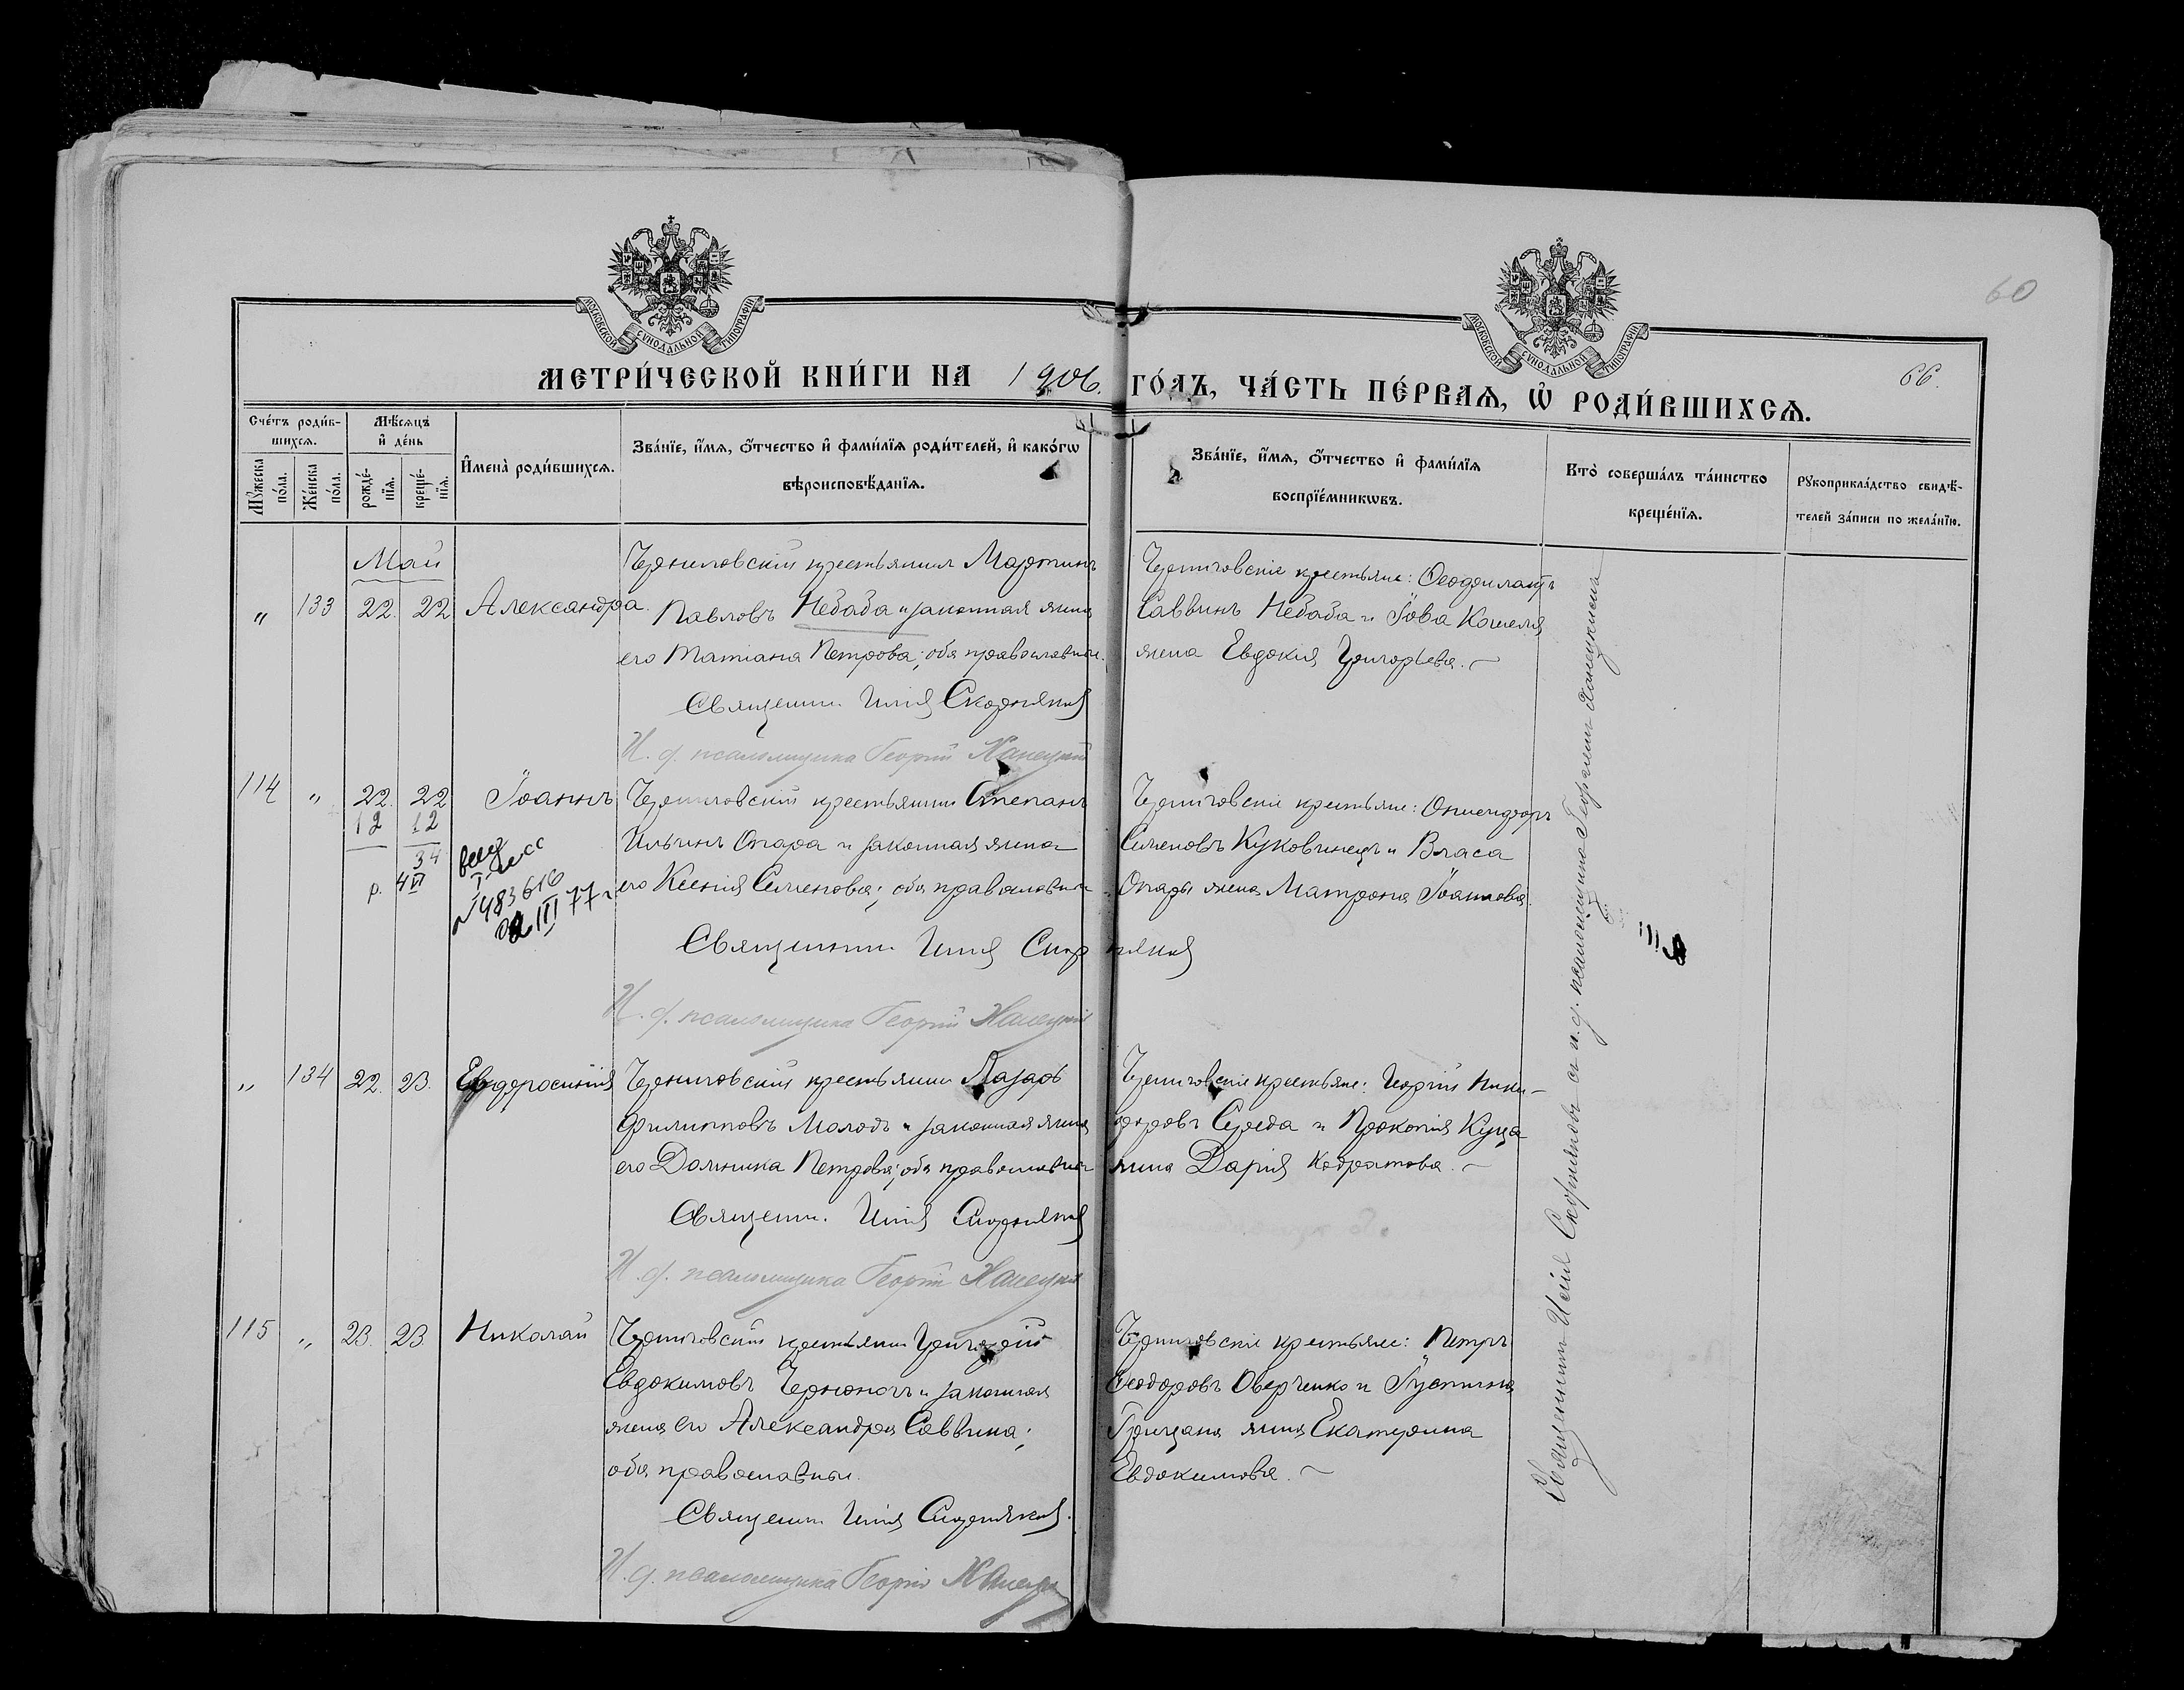 60
МОСКОВСКОЙ СУНОДАЛЬНОЙ ТИПОГРАФІИ
МОСКОВСКОЙ СУНОДАЛЬНОЙ ТИПОГРАФІИ
МЕТРИ́ЧЕСКОЙ КНИ́ГИ НА 1906. ГО́ДЪ, ЧА́СТЬ ПЕ́РВАѦ, Ѡ҆ РОДИ́ВШИХСѦ.
66.
Сче́тъ роди́в-
шихсѧ.
Мѣ́сѧцъ
и҆ де́нь
Мꙋ́жеска по́ла.
Же́нска по́ла.
рожде́-
нїѧ.
креще́-
нїѧ.
И҆мена̀ роди́вшихсѧ.
Зва́нїе, и҆́мѧ, ѻ҆́тчество и҆ фами́лїѧ роди́телей, и҆ како́гѡ
вѣроисповѣ́данїѧ.
Зва́нїе, и҆́мѧ, ѻ҆́тчество и҆ фами́лїѧ
воспрїе́мникѡвъ.
Кто̀ соверша́лъ та́инство
креще́нїѧ.
Рꙋкоприкла́дство свидѣ́-
телей за́писи по жела́нїю.
Май
" 133 22. 22 Александра.
Черниговскій крестьянинъ Мартинъ
Павловъ Небаба и законная жена
его Татіана Петрова; оба православные.
Священни. Илія Скорняковъ
И. д. псаломщика Георгій Ханецкій
Черниговскіе крестьяне:
Саввинъ Небаба и Іова Кошеля
жена Евдокія Григорьева.
114 " 22. 22 Іоаннъ
12 12
34
р. 4 VI
I
№ 483616
02 III 77 г
Черниговскій крестьянинъ Степанъ
Ильинъ Опара и законная жена
его Ксенія Семенова; оба православные
Священникъ Илія Скорняковъ
И. д. псаломщика Георгій Ханецкій
Черниговскіе крестьяне:
Семеновъ Куковинецъ и Власа
Опары жена Матрона Іоаннова.
" 134 22. 23. Евфросинія
Черниговскій крестьянинъ Лазарь
Филипповъ Молодъ и законная жена
его Домника Петрова; оба православные
Священни. Илія Скорняковъ
И. д. псаломщика Георгій Ханецкій
Черниговскіе крестьяне: Георгій Ники-
форовъ Середа и Прокопія Куца
жена Дарія
115 " 23. 23. Николай
Черниговскій крестьянинъ Григорій
Евдокимовъ и законная
жена его Александра Саввина;
оба православные.
Священни. Илія Скорняковъ.
И. д. псаломщика Георгій Ханецкій
Черниговскіе крестьяне: Петръ
Феодоровъ Оверченко и Іустина
Грицана жена Екатерина
Евдокимова.
Священникъ Илія Скорняковъ съ и. д. псаломщика Георгіемъ Ханецкимъ